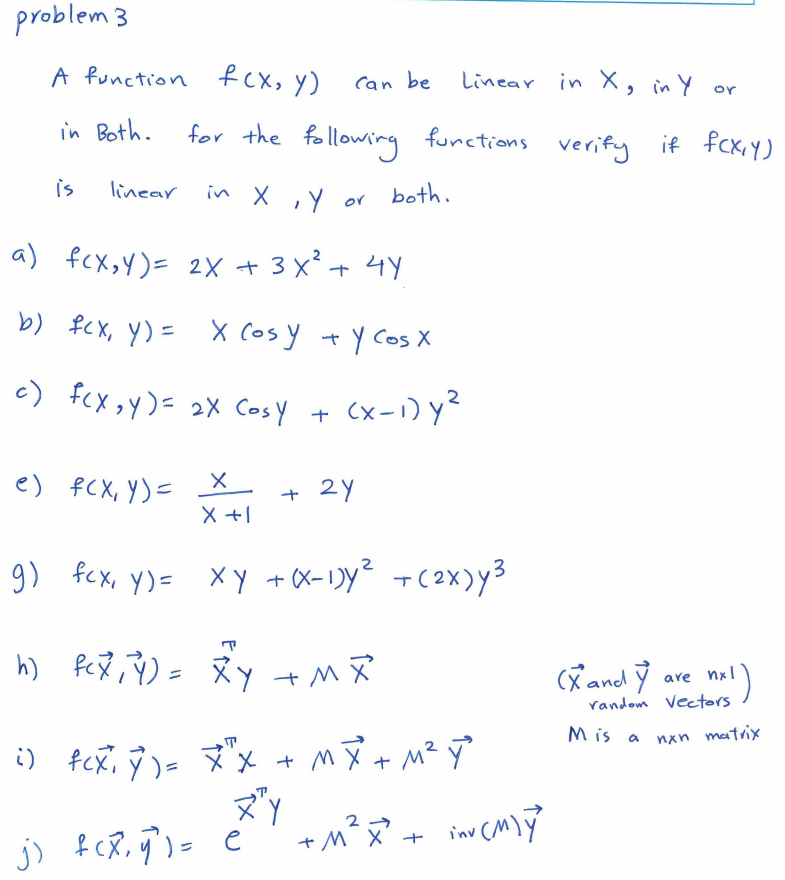 problem 3
A function f(x, y) can be Linear in X, in Y or
in Both. for the following functions verify if f(x,y)
is linear in X, Y or both.
a) f(x,y)= 2x + 3x² + 4y
b) f(x, y) = x Cos y + y Cos x
c) f(x,y)= 2x Cosy + (x-1) y²
e) f(x, y) = x/(x+1) + 2y
g) f(x, y)= xy + (x-1)y² + (2x)y³
h) f(x⃗, y⃗) = x⃗ᵀy + M x⃗
(x⃗ and y⃗ are nx1)
random vectors
M is a nxn matrix
i) f(x⃗, y⃗) = x⃗ᵀx + M x⃗ + M² y⃗
j) f(x⃗, y⃗) = e^(x⃗ᵀy) + M² x⃗ + inv(M)y⃗